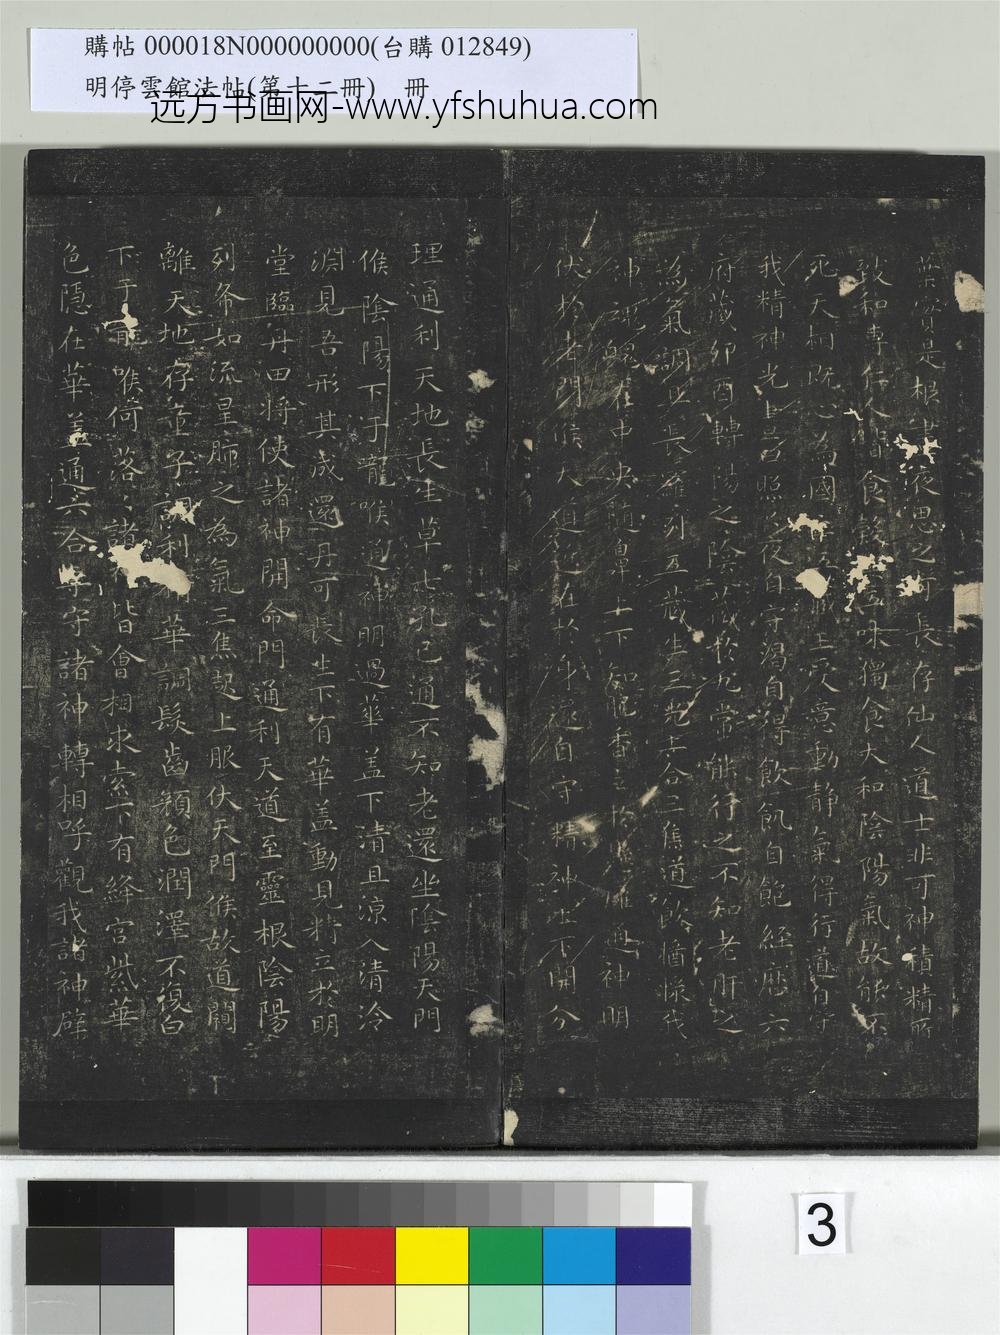 購帖 000018N000000000(台購 012849)
明停雲館法帖(第十二冊) 冊
远方书画网-www.yfshuhua.com
葉實是根晝夜思之可長存仙人道士非可神積精所
致和專仁人皆食穀五味獨食大和陰陽氣故能不
死天相既心為國主五藏王受意動静氣得行道自守
我精神光上晝日照照夜自守渴自得飲飢自飽經歷六
府藏卯酉轉陽之陰藏於九常能行之不知老肝之
為氣調且長羅列五藏生三光上合三焦道飲醬漿我
神魂魄在中央隨鼻上下知肥香立於懸雍通神明
伏於老門候天道近在於身還自守精神上下開分
理通利天地長生草七孔已通不知老還坐陰陽天門
候陰陽下于龍喉通神明過華蓋下清且凉入清泠
淵見吾形其成還丹可長生下有華蓋動見精立於明
堂臨丹田將使諸神開命門通利天道至靈根陰陽
列布如流星肺之為氣三焦起上服伏天門候故道闚
離天地存童子調利精華調髮齒顏色潤澤不復白
下于嚨喉何落落諸神皆會相求索下有絳宮紫華
色隱在華蓋通六合專守諸神轉相呼觀我諸神辟
3